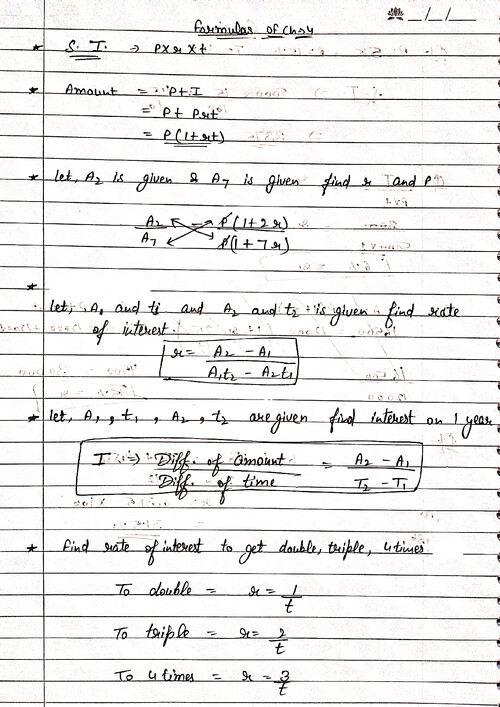 _/_/_
Formulas of Ch 4
* S. I. → P x r x t
* Amount = P + I
= P + Prt
= P (1 + rt)
* let, A2 is given & A7 is given find r and P
A2/A7 = P(1+2r)/P(1+7r)
*
let, A1 and t1 and A2 and t2 is given find rate
of interest.
r = A2 - A1 / A1t2 - A2t1
* let, A1, t1, A2, t2 are given find interest on 1 year
I ⇒ Diff. of amount / Diff. of time = A2 - A1 / T2 - T1
* Find rate of interest to get double, triple, 4 times
To double = r = 1/t
To triple = r = 2/t
To 4 times = r = 3/t